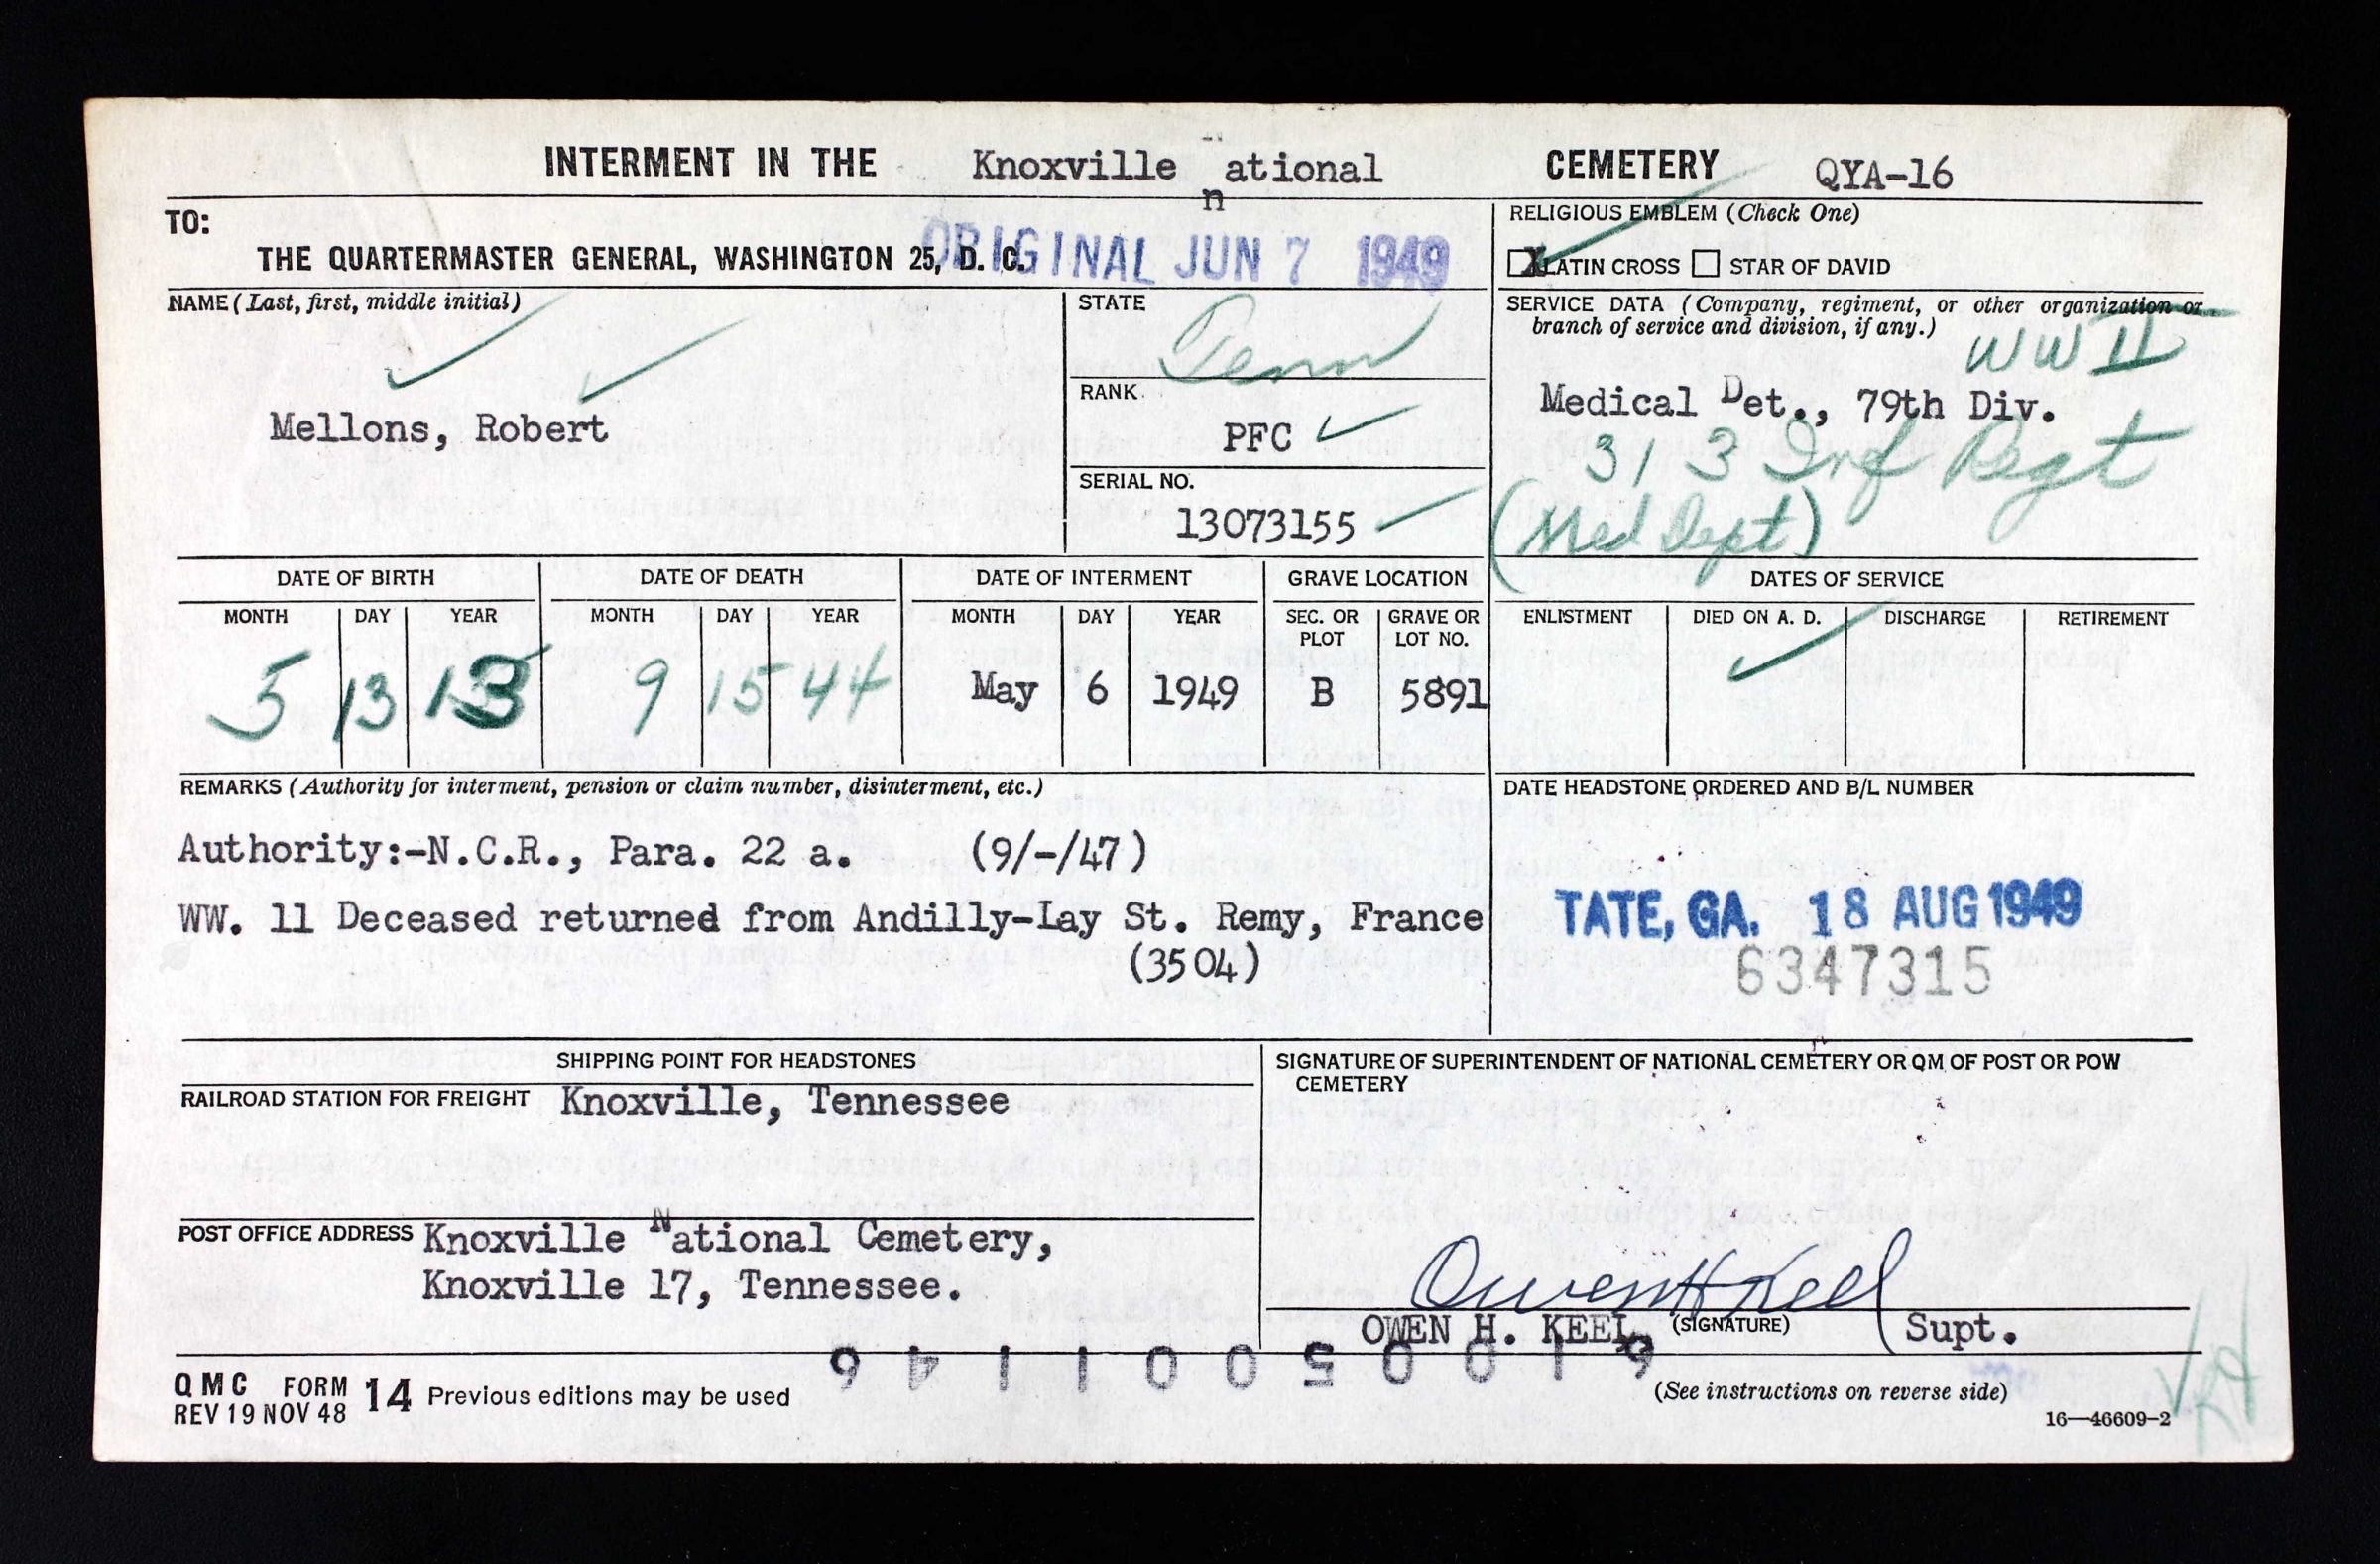 INTERMENT IN THE Knoxville national CEMETERY QYA-16
TO:
THE QUARTERMASTER GENERAL, WASHINGTON 25, D. C.
ORIGINAL JUN 7 1949
RELIGIOUS EMBLEM (Check One)
X LATIN CROSS STAR OF DAVID
NAME (Last, first, middle initial)
Mellons, Robert
STATE
Tenn
RANK
PFC
SERIAL NO.
13073155
SERVICE DATA (Company, regiment, or other organization or
branch of service and division, if any.)
WW II
Medical Det., 79th Div.
313 Inf Regt
(Med Dept)
DATE OF BIRTH DATE OF DEATH DATE OF INTERMENT GRAVE LOCATION DATES OF SERVICE
MONTH DAY YEAR MONTH DAY YEAR MONTH DAY YEAR SEC. OR PLOT GRAVE OR LOT NO. ENLISTMENT DIED ON A. D. DISCHARGE RETIREMENT
5 13 13 9 15 44 May 6 1949 B 5891
REMARKS (Authority for interment, pension or claim number, disinterment, etc.)
Authority:-N.C.R., Para. 22 a. (9/-/47)
WW. 11 Deceased returned from Andilly-Lay St. Remy, France
(3504)
DATE HEADSTONE ORDERED AND B/L NUMBER
TATE, GA. 18 AUG 1949
6347315
SHIPPING POINT FOR HEADSTONES
RAILROAD STATION FOR FREIGHT Knoxville, Tennessee
POST OFFICE ADDRESS Knoxville National Cemetery,
Knoxville 17, Tennessee.
SIGNATURE OF SUPERINTENDENT OF NATIONAL CEMETERY OR QM OF POST OR POW
CEMETERY
Owen H Keel
OWEN H. KEEL (SIGNATURE) Supt.
QMC FORM 14 Previous editions may be used
REV 19 NOV 48
(See instructions on reverse side)
16—46609-2